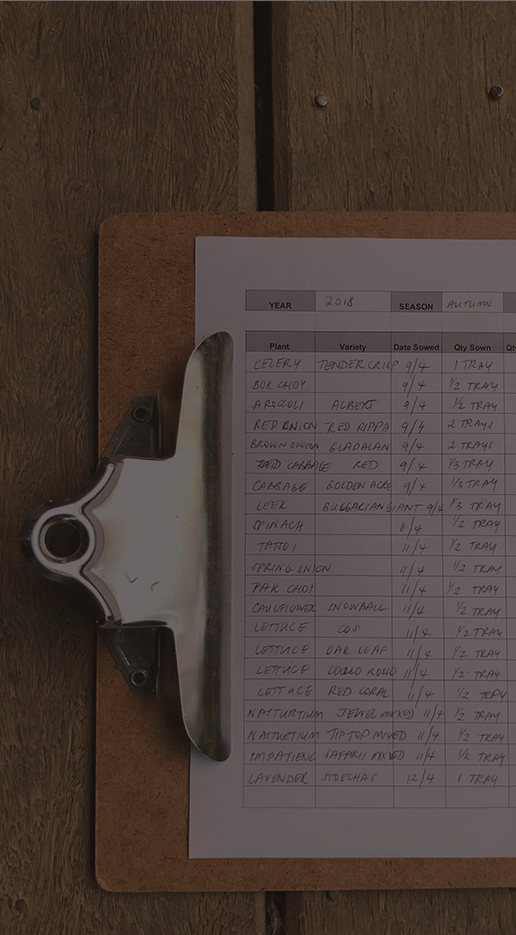 YEAR 2018 SEASON AUTUMN
Plant Variety Date Sowed Qty Sown Qty
CELERY TENDER CRISP 9/4 1 TRAY
BOK CHOY 9/4 1/2 TRAY
BROCCOLI ALBERT 9/4 1/2 TRAY
RED ONION RED RIPPA 9/4 2 TRAYS
BROWN ONION GLADALAN 9/4 2 TRAYS
CABBAGE RED 9/4 1/3 TRAY
CABBAGE GOLDEN ACRE 9/4 1/3 TRAY
LEEK BULGARIAN GIANT 9/4 1/3 TRAY
SPINACH 11/4 1/2 TRAY
TATSOI 11/4 1/2 TRAY
SPRING ONION 11/4 1/2 TRAY
PAK CHOI 11/4 1/2 TRAY
CAULIFLOWER SNOWBALL 11/4 1/2 TRAY
LETTUCE COS 11/4 1/2 TRAY
LETTUCE OAK LEAF 11/4 1/2 TRAY
LETTUCE LOLLO ROSSO 11/4 1/2 TRAY
LETTUCE RED CORAL 11/4 1/2 TRAY
NASTURTIUM JEWEL MIXED 11/4 1/2 TRAY
NASTURTIUM TIP TOP MIXED 11/4 1/2 TRAY
IMPATIENS SAFARII MIXED 11/4 1/2 TRAY
LAVENDER STOECHAS 12/4 1 TRAY